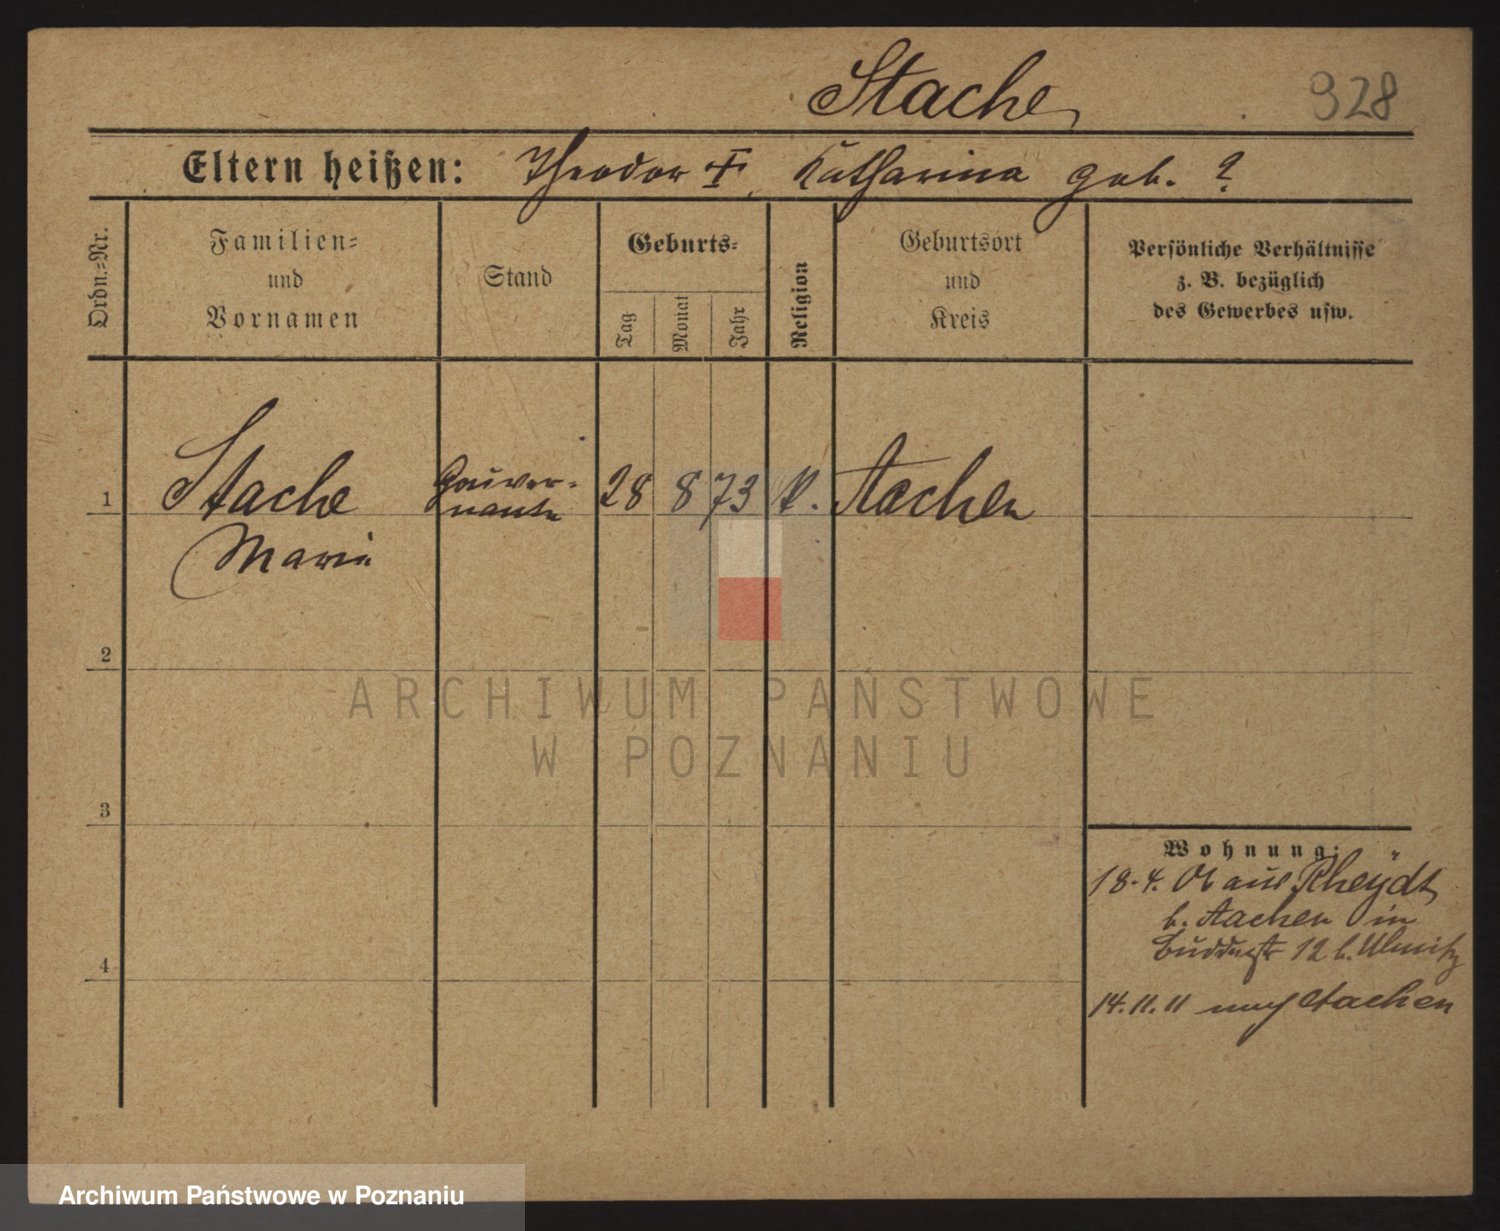 Stache
928
Eltern heißen: Theodor † Katharina geb. ?
Ordn.=Nr.
Familien=
und
Vornamen
Stand
Geburts=
Tag
Monat
Jahr
Religion
Geburtsort
und
Kreis
Persönliche Verhältnisse
z. B. bezüglich
des Gewerbes usw.
1 Stache Gouver- 28 8 73 k. Aachen
Marie nante
2
3
4
Wohnung:
18.4. 01 aus Rheydt
b. Aachen in
12 b.
14.11.11 nach Aachen
ARCHIWUM PAŃSTWOWE
W POZNANIU
Archiwum Państwowe w Poznaniu